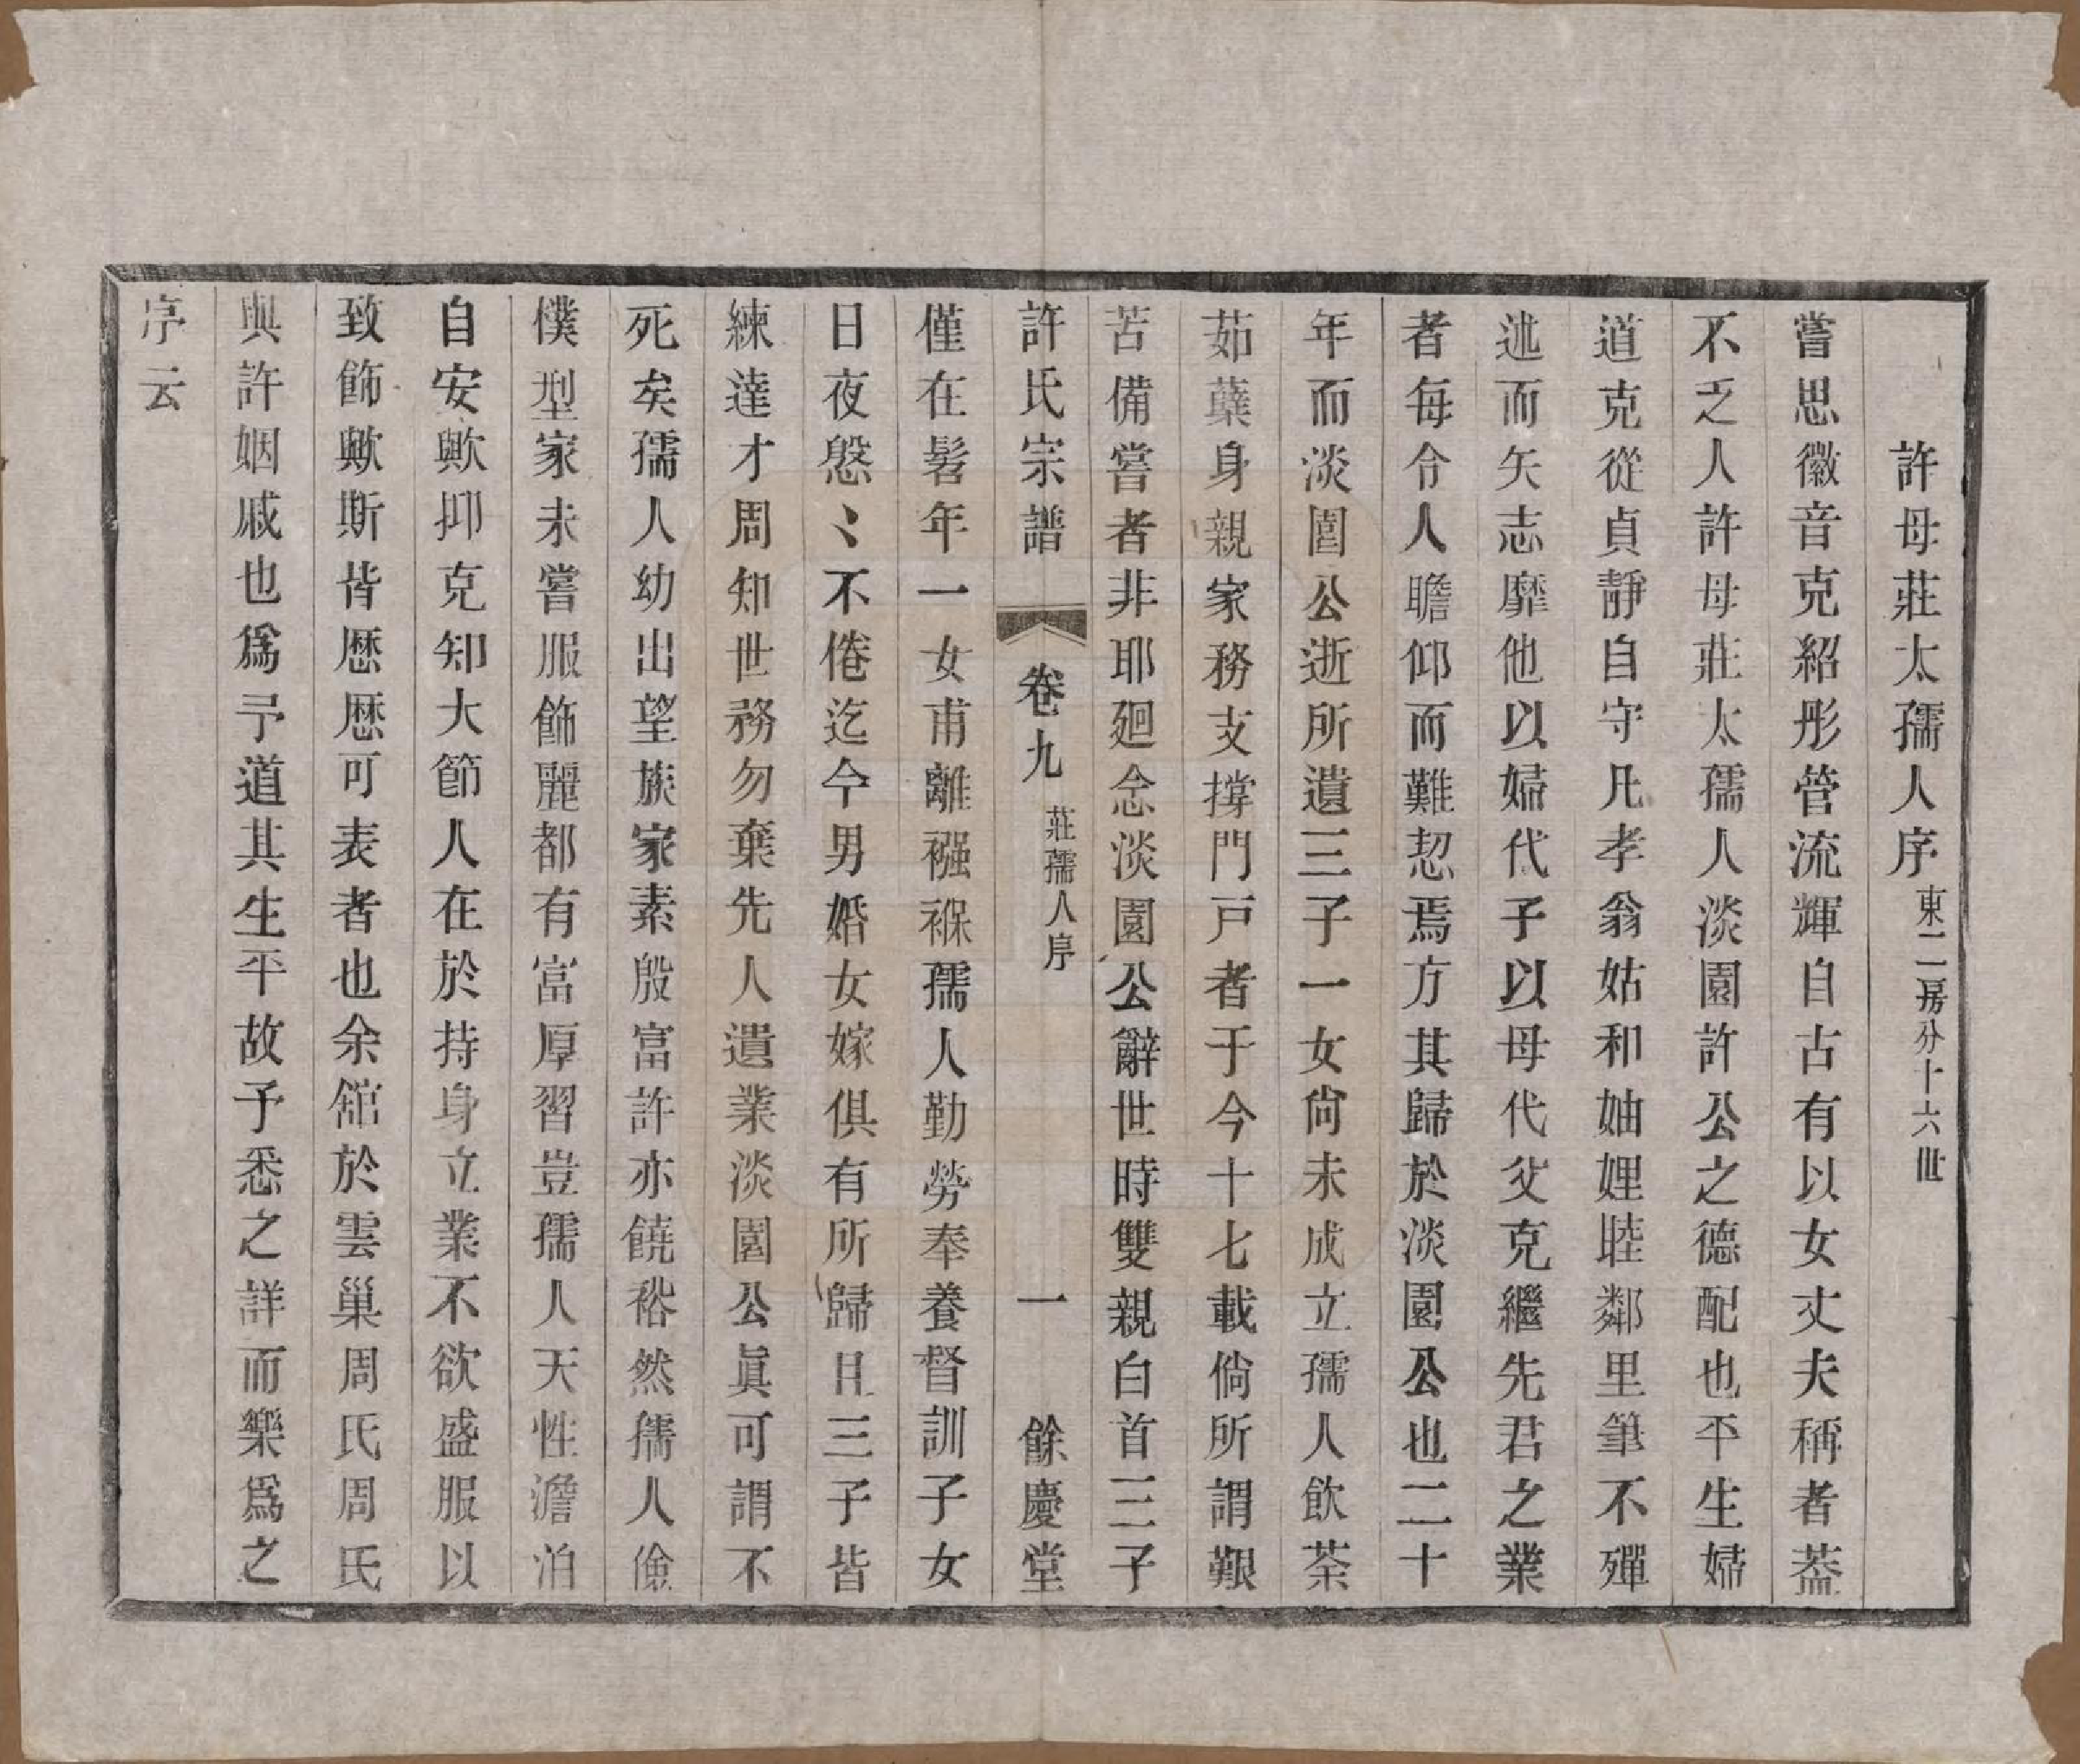 許母莊太孺人序東二房分十六世
嘗思徽音克紹彤管流輝自古有以女丈夫稱者葢
不乏人許母莊太孺人淡園許公之德配也平生婦
道克從貞靜自守凡孝翁姑和妯娌睦鄰里筆不殫
述而矢志靡他以婦代子以母代父克繼先君之業
者每令人瞻仰而難恝焉方其歸於淡園公也二十
年而淡園公逝所遺三子一女尙未成立孺人飲茶
茹蘖身親家務支撐門戸者于今十七載倘所謂艱
苦備嘗者非耶廻念淡園公辭世時雙親白首三子
許氏宗譜 卷九 莊孺人序 一 餘慶堂
僅在髫年一女甫離襁褓孺人勤勞奉養督訓子女
日夜慇〻不倦迄今男婚女嫁俱有所歸且三子皆
練達才周知世務勿棄先人遺業淡園公眞可謂不
死矣孺人幼出望族家素殷富許亦饒裕然孺人儉
樸型家未嘗服飾麗都有富厚習豈孺人天性澹泊
自安歟抑克知大節人在於持身立業不欲盛服以
致飾歟斯皆歷歷可表者也余舘於雲巢周氏周氏
與許姻戚也爲予道其生平故予悉之詳而樂爲之
序云